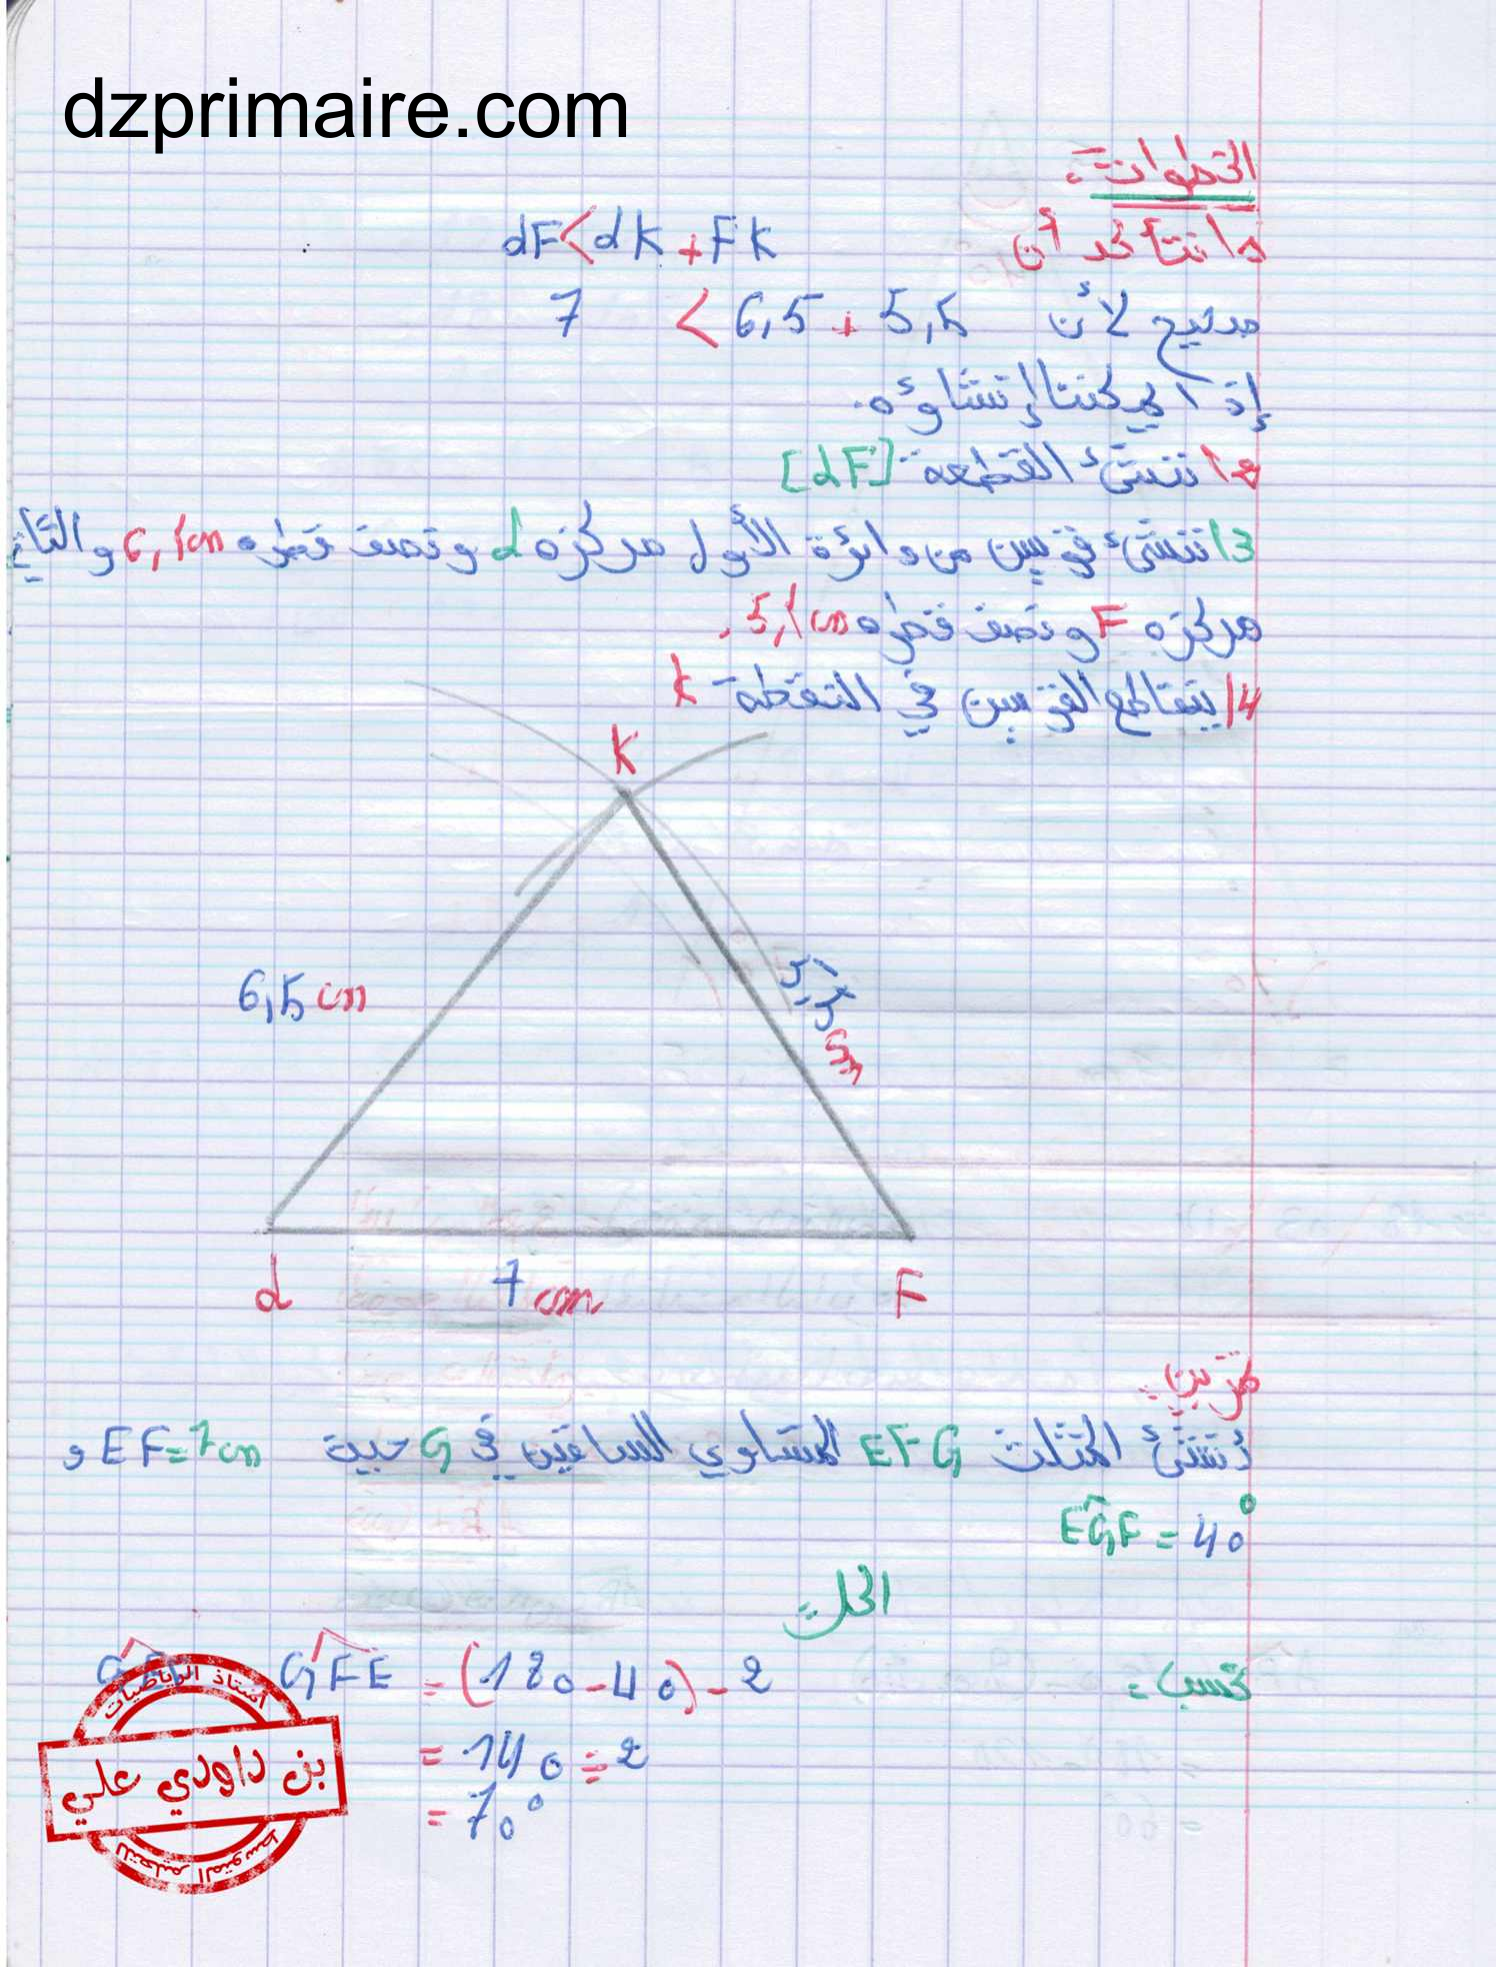 dzprimaire.com
الخطوات:
1/ نتأكد أن dF < dK + FK
صحيح لأن 7 < 6,5 + 5,5
إذا يمكننا إنشاؤه.
2/ ننشئ القطعة [dF]
3/ ننشئ قوسين من دائرة الأول مركزه d ونصف قطره 6,5cm والثاني
مركزه F ونصف قطره 5,5cm.
4/ يتقاطع القوسين في النقطة K
K
6,5 cm
5,5 cm
d
7 cm
F
تمرين:
أنشئ المثلث EFG المتساوي الساقين في G حيث EF=7cm و
EĜF = 40°
الحل:
نحسب: GFE = (180-40) ÷ 2
= 140 ÷ 2
= 70°
أستاذ الرياضيات
بن داودي علي
للتعليم المتوسط